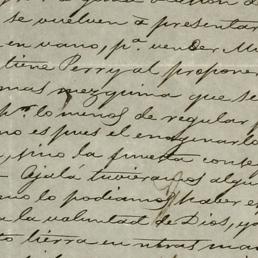 se vuelven á presentar
en vano, pª. vender. Mu
tiene Perry al proponer
mas mezquina que se
pr. lo menos de regular
no es pues el enagenarlo
, sino la puerta conse
- Ojalá tuvieramos algu
no lo podiamos haber e
a la voluntad de Dios, yo
tierra en ntras man